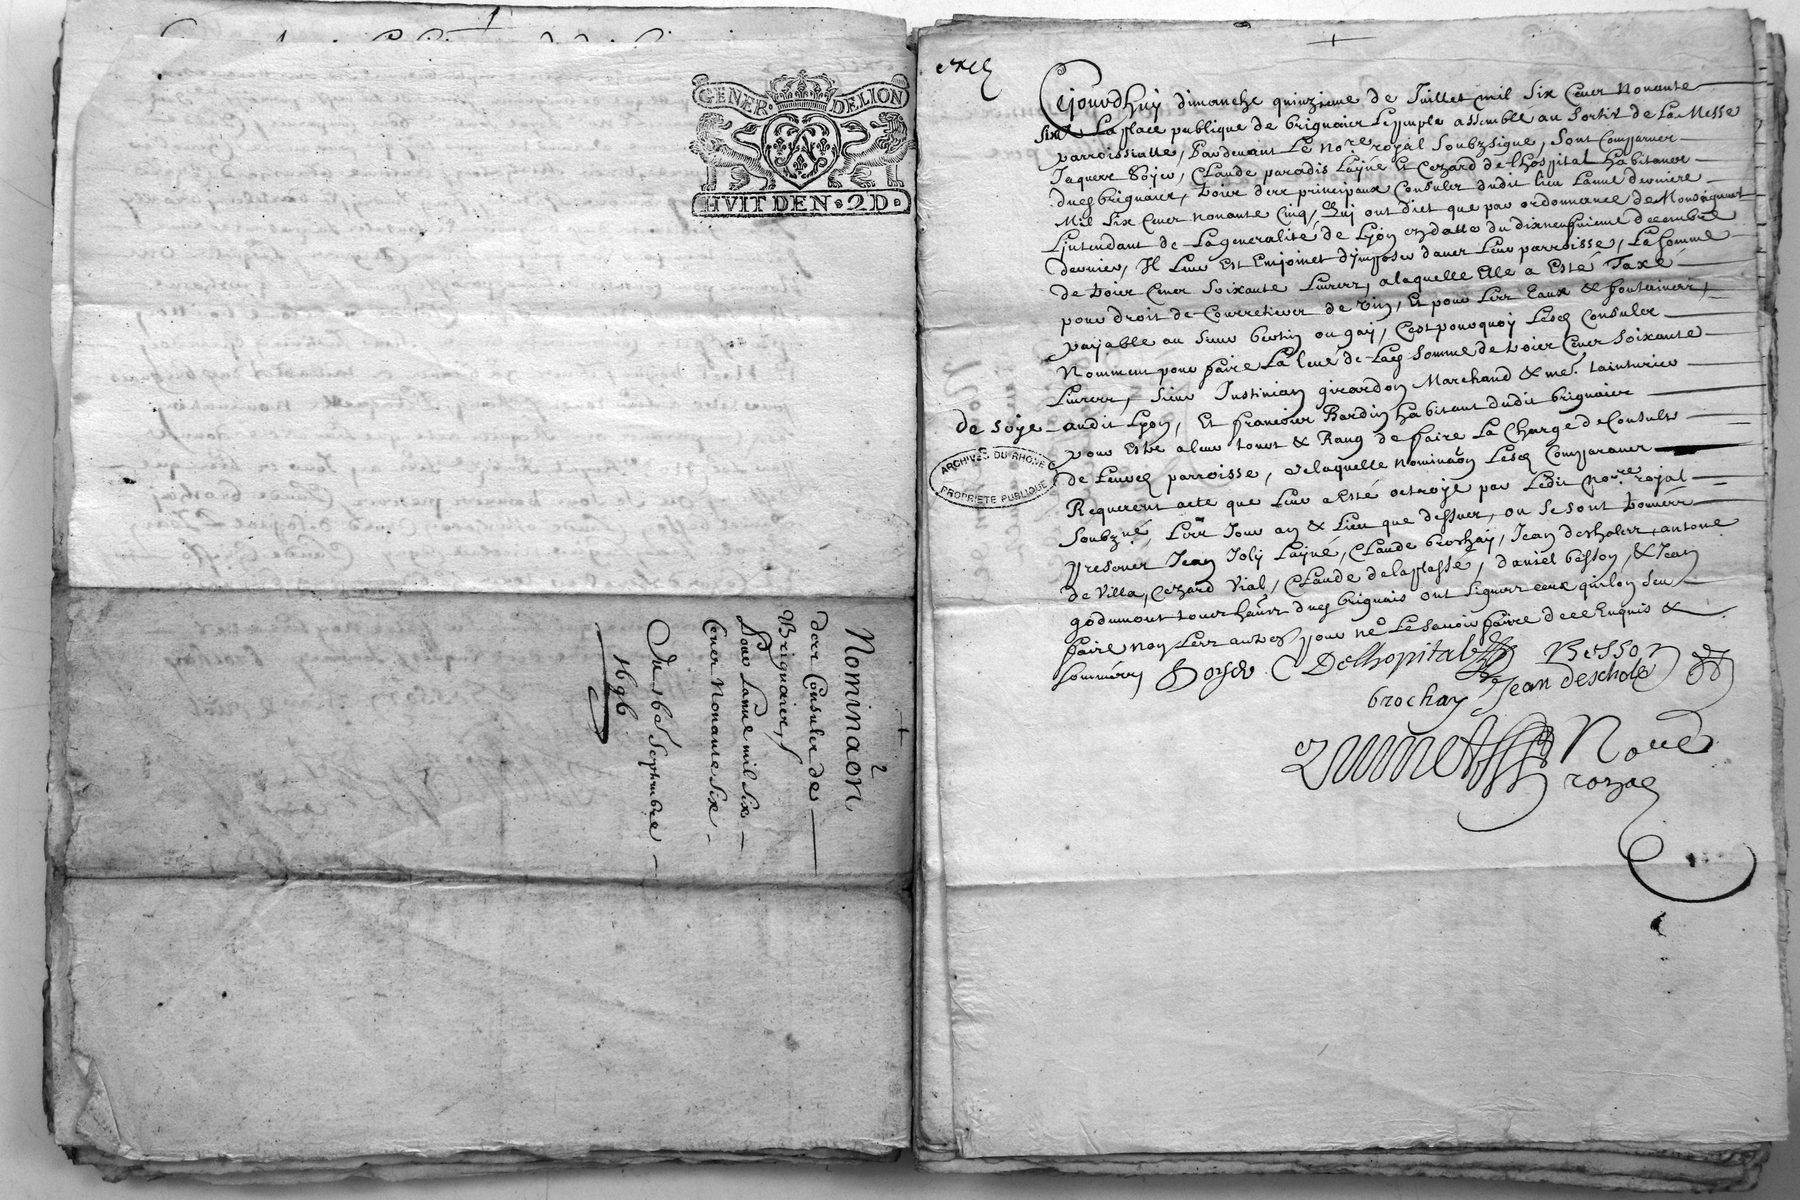 GENER. DELION
HVIT DEN. 2D.
Nominaon
des Consulz de
Brignais,
Pour Lanné mil six
Cens Nonante six
Du 16e Septembre
1696.
Cejourdhuy dimanche quinzieme de Juillet mil six Cens Nonante
six, La place publique de brignais Le peuple assemblé au sortir de La Messe
parroissialle, Pardevant Le Nore royal soubzsigne, sont Comparus
Jaques Boyer, Claude paradis Layné Et Cezard delhospital habitans
dud brignais, trois des principaux Consulz dudit lieu Lanné derniere
Mil six Cens nonante Cinq, Qui ont dict que par ordonnance de Monseigneur
Lintendant de La generalité de Lyon en datte du dixneufvieme decembre
dernier, Il Leur Est Enjoinct d'imposer dans Leur parroisse, La somme
de trois Cens soixante Livres, a laquelle Elle a Esté Taxé
pour droit de Courretiers de vin, Et pour Les Eaux & fontaines,
payable au sieur bertin ou gay, C'est pourquoy Lesd Consulz
Nomment pour faire La levé de Lad somme de trois Cens soixante
Livres, sieur Justinian girardon Marchand & me. tainturier
de soye audit Lyon, Et françois Bardin habitant dudit brignais
pour Estre a leur tour & Rang de faire La Charge de Consulz
de Leurd parroisse, de laquelle Nominaon Lesd Comparans
Requerent acte que Leur a Esté octroyé par Ledit Nore royal
soubzné, Les Jour an & Lieu que dessus, ou se sont trouvés
presens Jean Joly Layné, Claude brochay, Jean descholes, antoine
de Villa, Cezard Vial, Claude delaplasse, daniel besson, & Jean
godumont tous habns dud brignais ont signes ceux qui lon sçu
faire non Les autres pour ne Le savoir faire de ce Enquis &
sommés
Boyer Delhopital Besson
brochay Jean deschole
Nore
royal
ARCHIVES DU RHONE
PROPRIETE PUBLIQUE